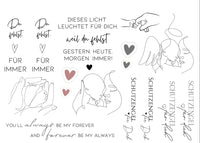 Du
fehlst
♡
FÜR
IMMER
Du
fehlst
♡
FÜR
IMMER
DIESES LICHT
LEUCHTET FÜR DICH
weil du fehlst
GESTERN. HEUTE.
MORGEN. IMMER!
SCHUTZENGEL
für Dich
SCHUTZENGEL
für Dich
YOU'LL always BE MY FOREVER
AND forever BE MY ALWAYS